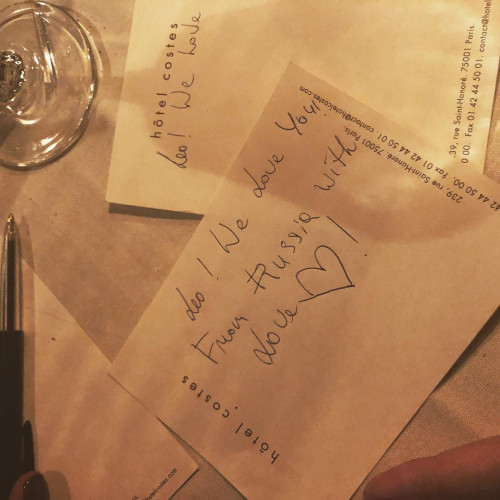 hôtel costes
Leo! We Love
39, rue Saint-Honoré, 75001 Paris
00. Fax 01 42 44 50 01. contact@hotel
Leo! We Love You!
From Russia with
Love ♡!
hôtel costes
239, rue Saint-Honoré 75001 Paris.
42 44 50 00. Fax 01 42 44 50 01 contact@hotelcostes.com